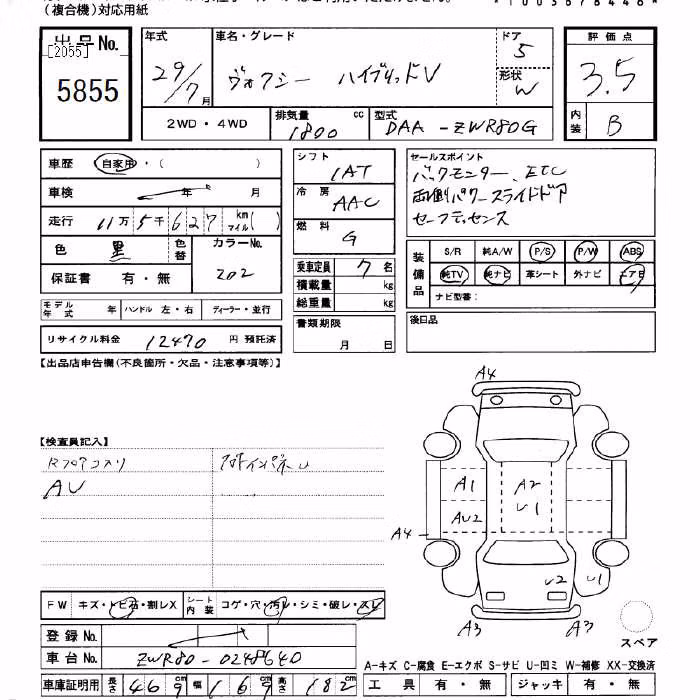 (複合機)対応用紙
出品No.
[2055]
5855
年式
29/7月
車名・グレード
ヴォクシー ハイブリッドV
ドア
5
形状
W
評価点
3.5
内装
B
2WD・4WD
排気量
1800 cc
型式
DAA-ZWR80G
車歴 自家用・( )
車検 年 月
走行 11万5千627 km マイル( )
色 黒 色替 カラーNo. 202
保証書 有・無
モデル年式 年 ハンドル 左・右 ディーラー・並行
リサイクル料金 12470 円 預託済
シフト
IAT
冷房
AAC
燃料
G
乗車定員 7 名
積載量 kg
総重量 kg
書類期限
月 日
セールスポイント
バックモニター、ETC
両側パワースライドドア
セーフティセンス
装備品
S/R 純A/W P/S P/W ABS
純TV 純ナビ 革シート 外ナビ エアB
ナビ型番:
後日品
【出品店申告欄(不良箇所・欠品・注意事項等)】
【検査員記入】
AU
A4
A1
A2
U1
AU2
A4
U2
U1
A3
A3
スペア
FW キズ・トビ石・割レX シート内装 コゲ・穴・汚レ・シミ・破レ・スレ
登録No.
車台No. ZWR80-0248640
車庫証明用 長さ 469 幅 169 高さ 182
A-キズ C-腐食 E-エクボ S-サビ U-凹ミ W-補修 XX-交換済
工具 有・無 ジャッキ 有・無